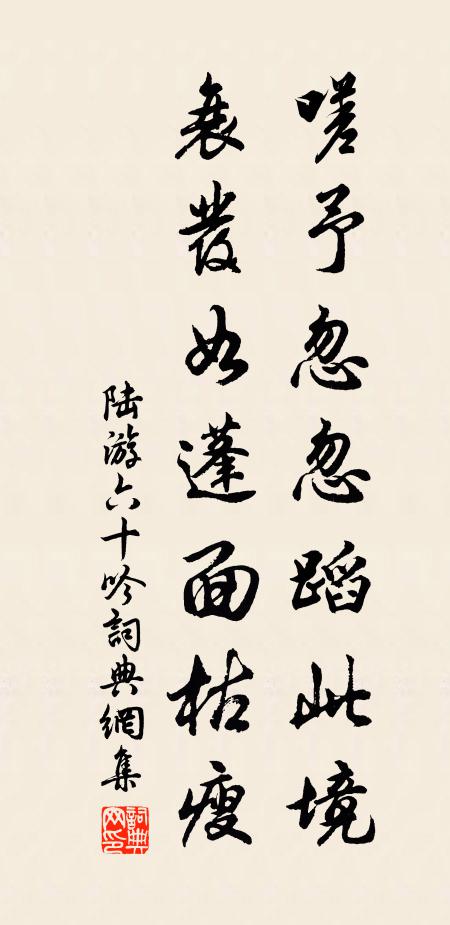 嗟予忽忽蹈此境
衰發如蓬面枯瘦
陸游六十吟詞典網集
詞典网印